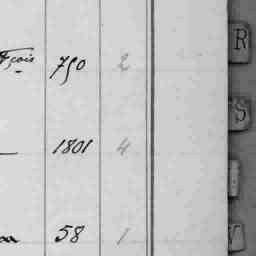 çois 750 2 R
S
1801 4
58 1 V